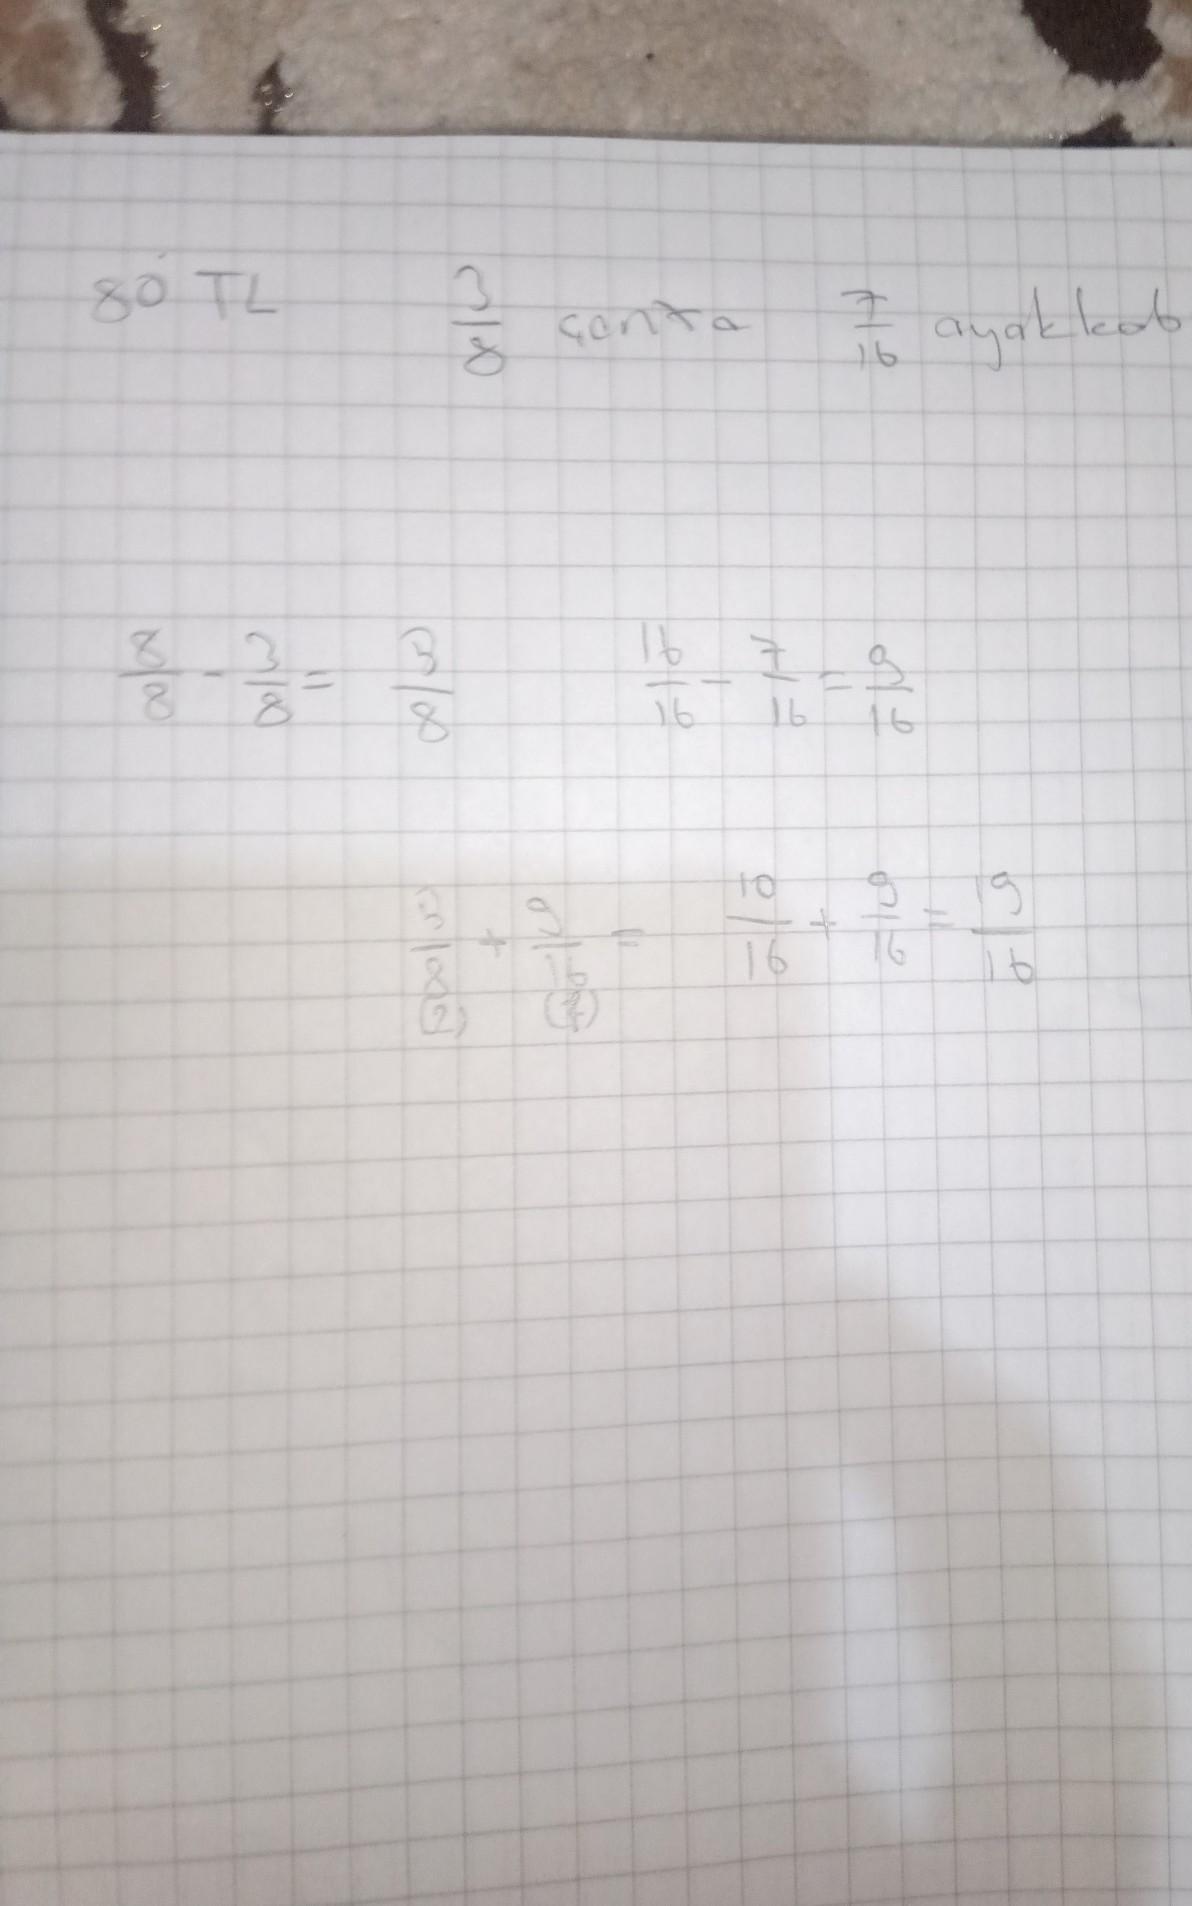 80 TL 3/8 çanta 7/16 ayakkab
8/8 - 3/8 = 5/8 16/16 - 7/16 = 9/16
5/8 + 9/16 = 10/16 + 9/16 = 19/16
(2)